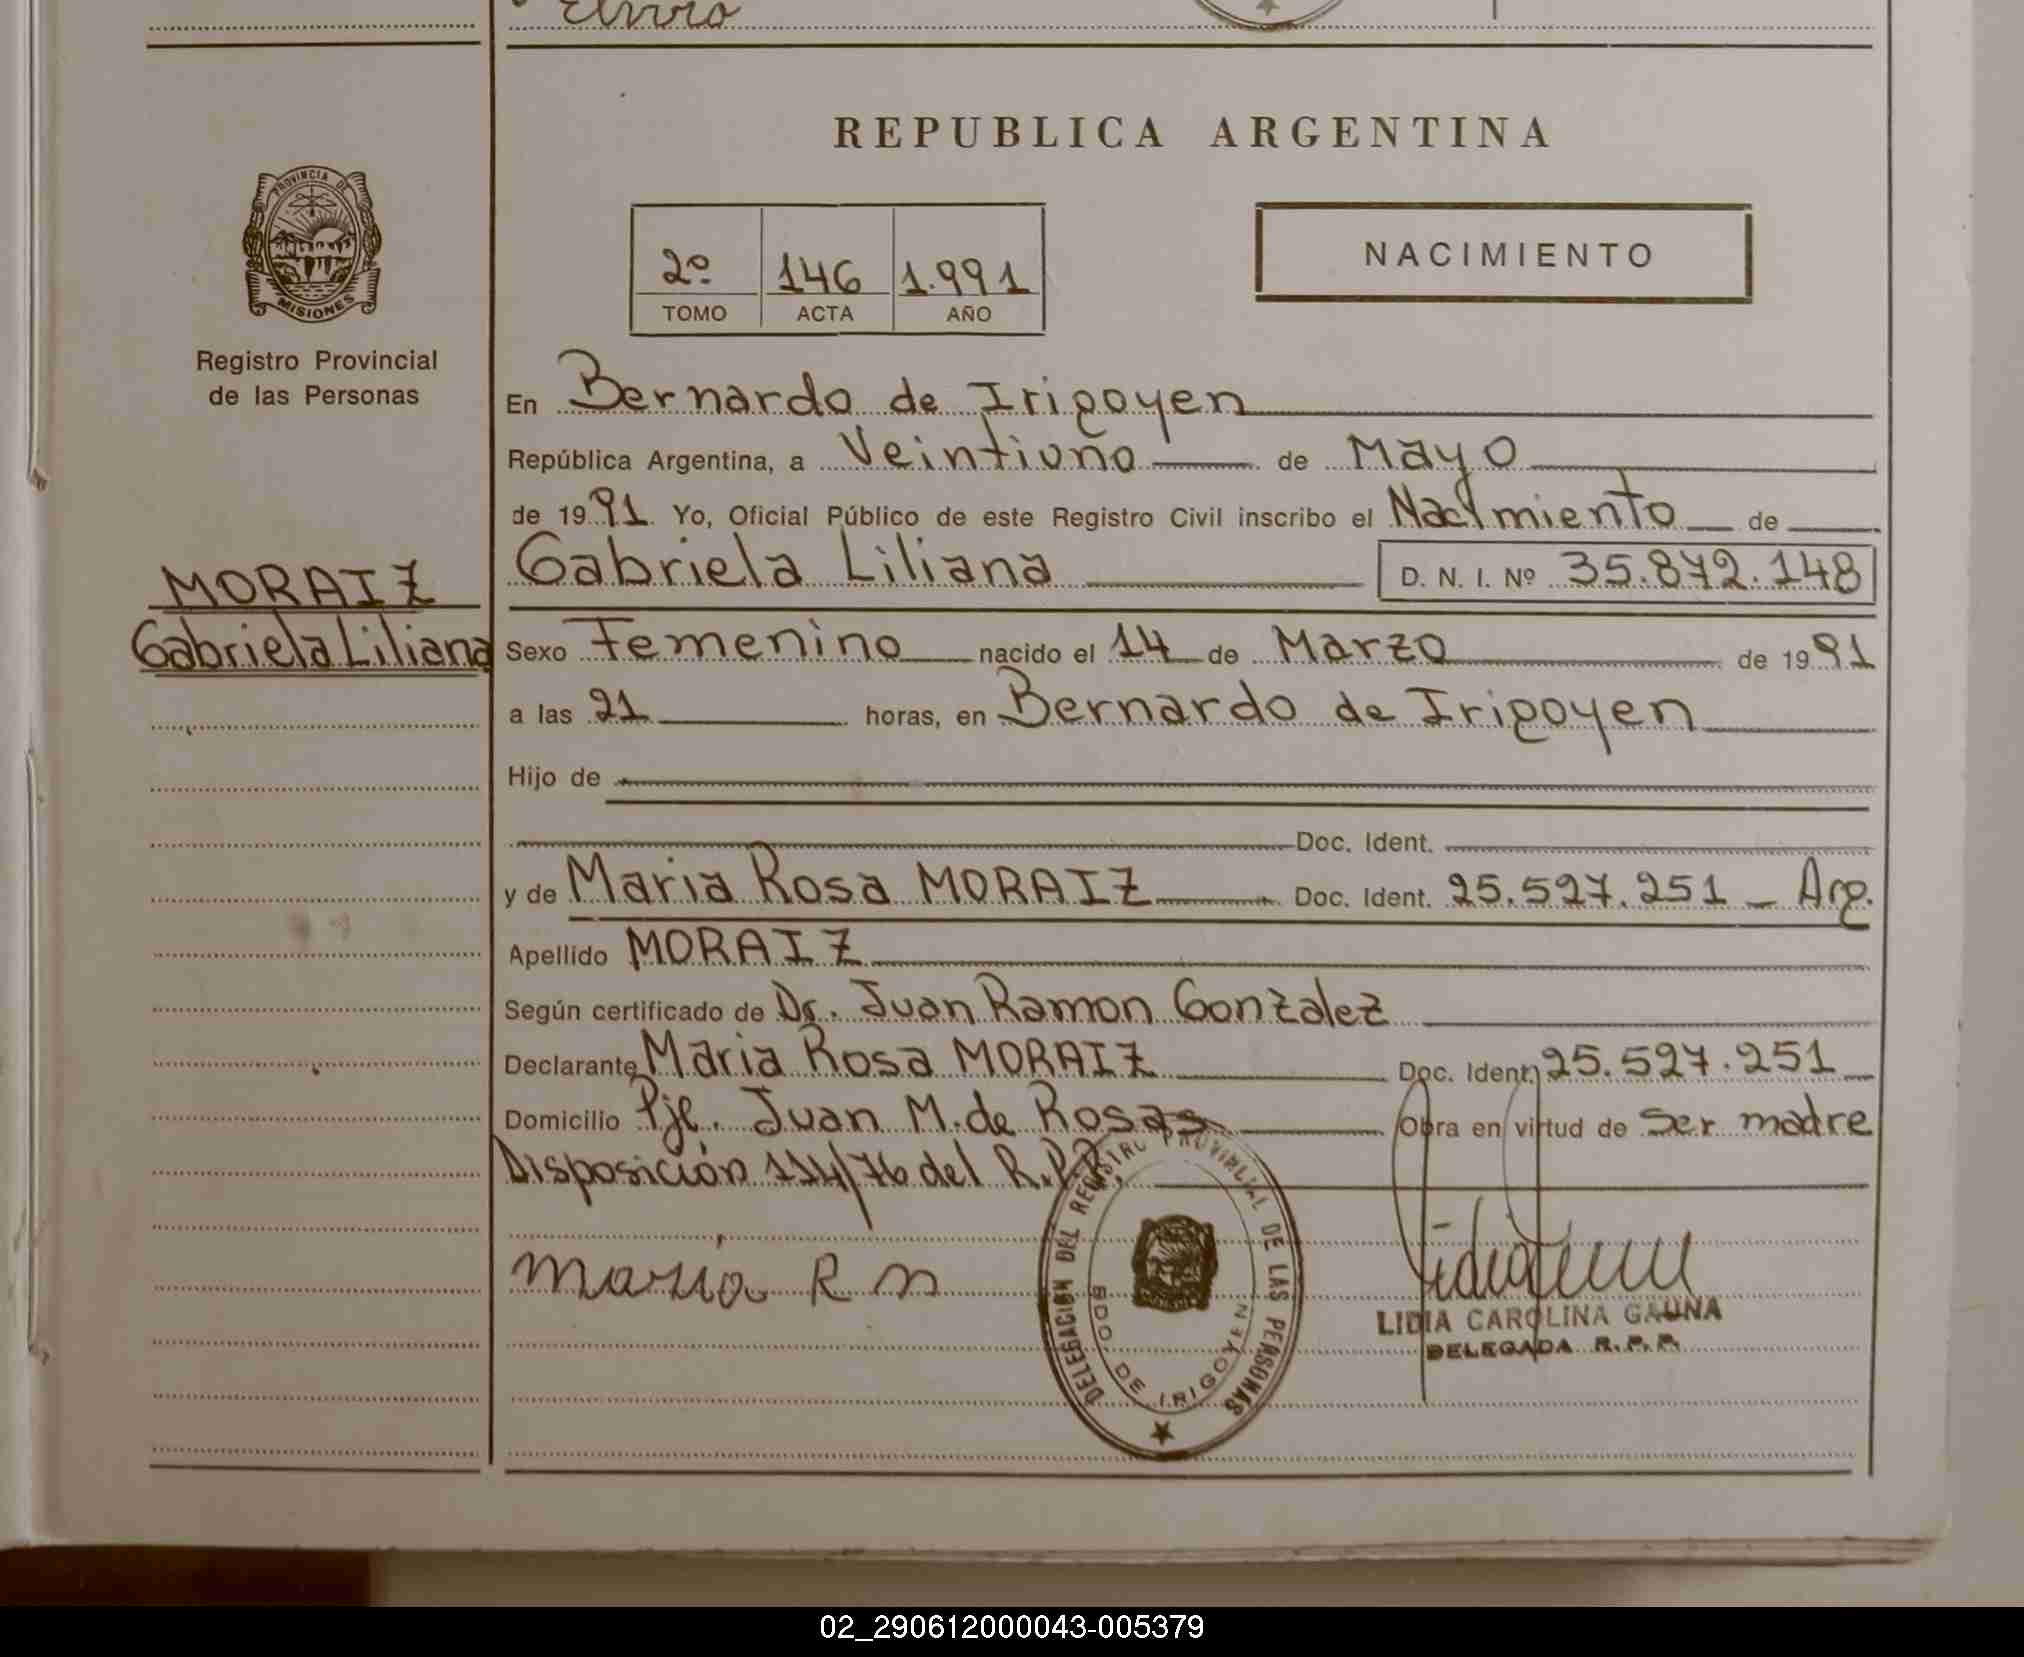 Elvio
REPUBLICA ARGENTINA
PROVINCIA DE
MISIONES
Registro Provincial
de las Personas
2º 146 1.991
TOMO ACTA AÑO
NACIMIENTO
En Bernardo de Irigoyen
República Argentina, a Veintiuno de Mayo
de 1991. Yo, Oficial Público de este Registro Civil inscribo el Nacimiento de
MORAIZ
Gabriela Liliana
Gabriela Liliana D. N. I. Nº 35.872.148
Sexo Femenino nacido el 14 de Marzo de 1991
a las 21 horas, en Bernardo de Irigoyen
Hijo de
Doc. Ident.
y de Maria Rosa MORAIZ Doc. Ident. 25.527.251 - Arg.
Apellido MORAIZ
Según certificado de Dr. Juan Ramon Gonzalez
Declarante Maria Rosa MORAIZ Doc. Ident. 25.527.251
Domicilio Pje. Juan M. de Rosas Obra en virtud de ser madre
Disposición 114/76 del R.P.P.
maria R m
DELEGACION DEL REGISTRO PROVINCIAL DE LAS PERSONAS
BDO. DE IRIGOYEN
LIDIA CAROLINA GAUNA
DELEGADA R.P.P.
02_290612000043-005379